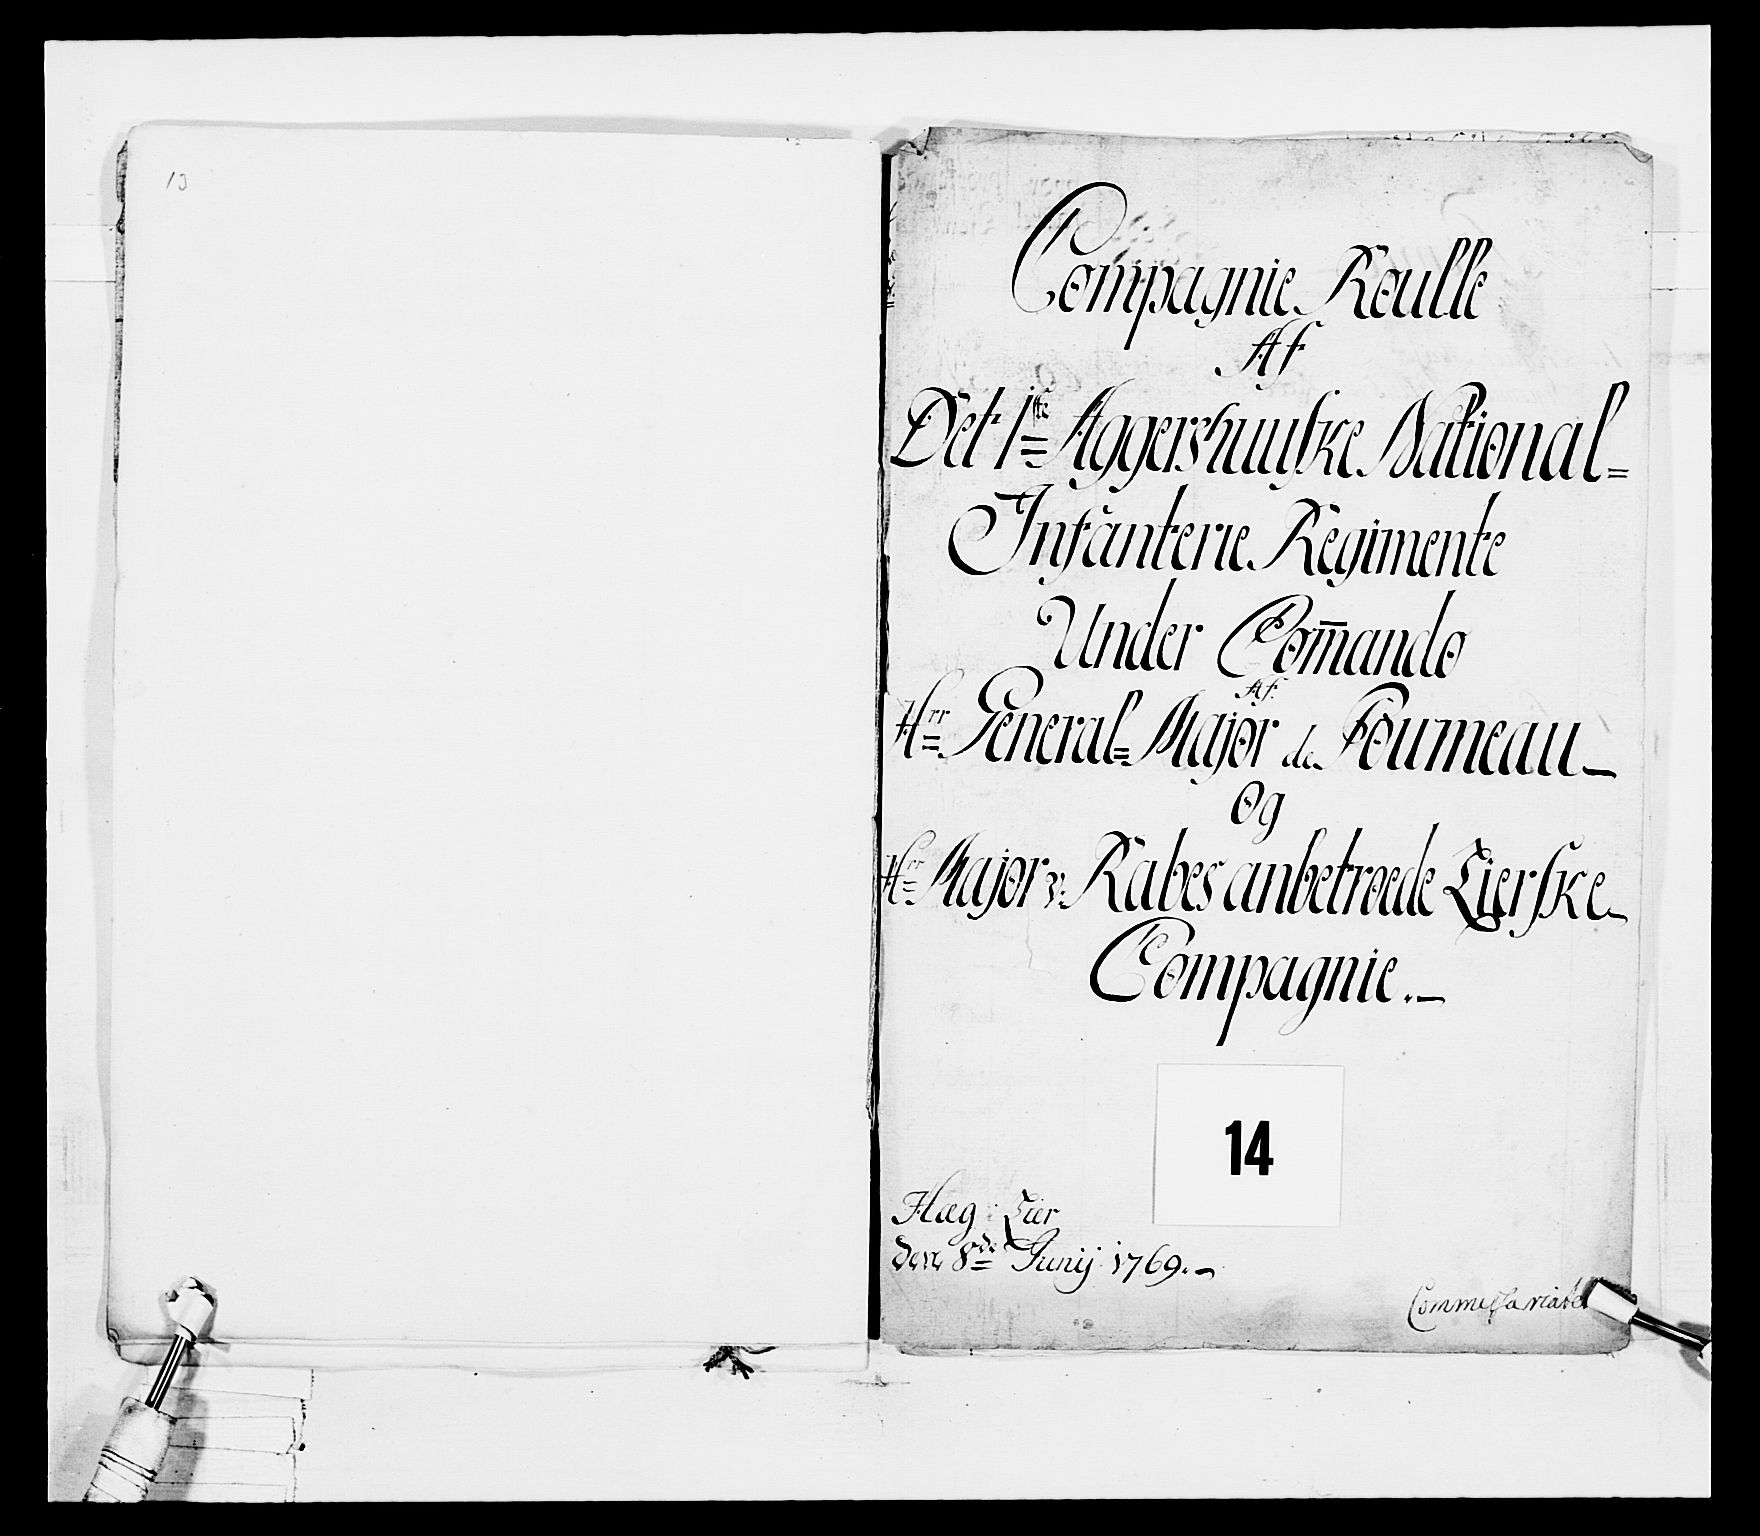 13
Compagnie Roulle
Af
Det 1ste Aggershuuske National=
Infanterie Regimente
Under Com̄ando
Af
Hrr General=Major de Foumeau
Og
Hrr Major v: Rabes anbetroede Lierske
Compagnie.
14
Hæg i Lier
den 8de Junij 1769.
Commissariatet